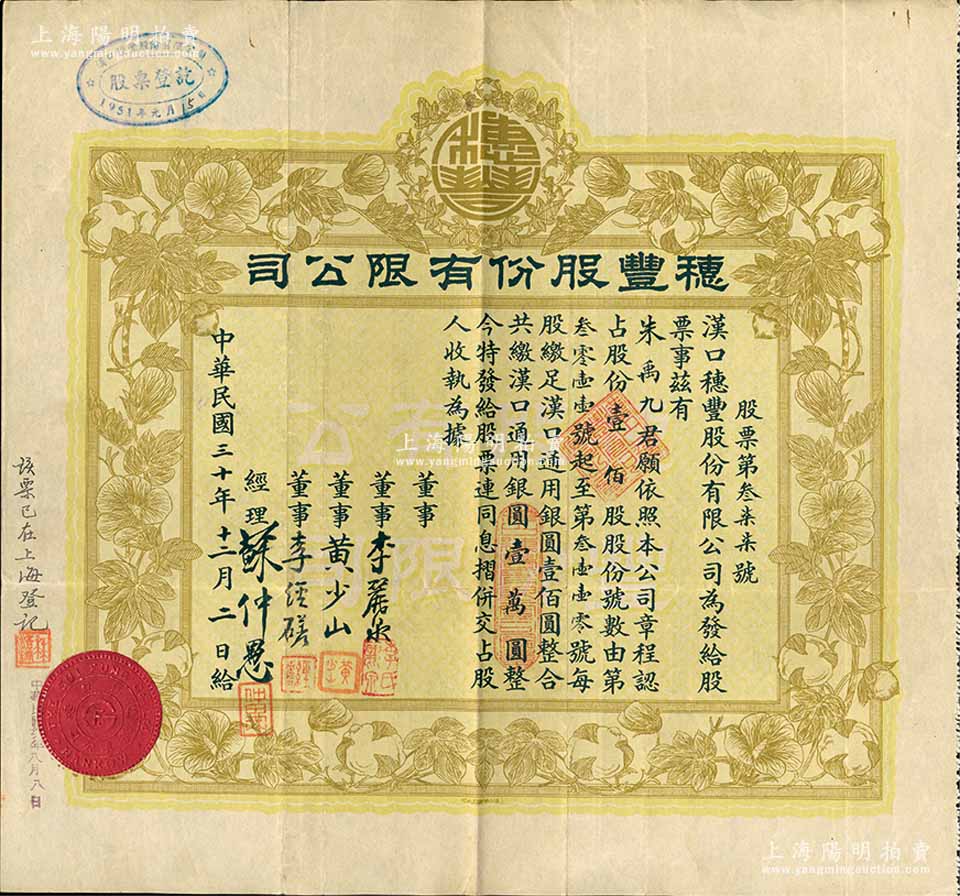 上海陽明拍賣
www.yangmingauction.com
股票登記
1951年元月15日
15
穗豐
穗豐股份有限公司
股票第叁柒柒號
漢口穗豐股份有限公司為發給股
票事茲有
朱禹九君願依照本公司章程認
占股份壹佰股股份號數由第
叁零壹壹號起至第叁壹壹零號每
股繳足漢口通用銀圓壹佰圓整合
共繳漢口通用銀圓壹萬圓整
今特發給股票連同息摺併交占股
人收執為據
董事
董事 李蔚泉
董事 黃少山
董事 李經磋
經理 蘇仲愚
中華民國三十年十二月二日給
該票已在上海登記
年八月八日
上海陽明拍賣
www.yangmingauction.com
上海陽明拍賣
www.yangmingauction.com